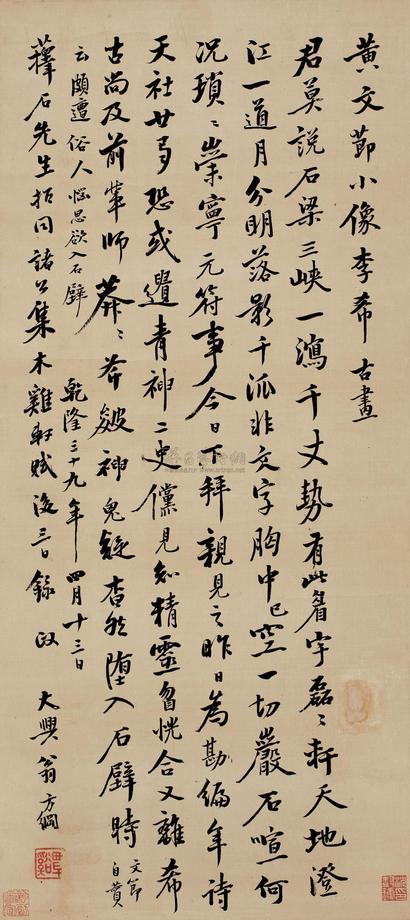 黄文節小像李希古畫
君莫說石梁三峽一瀉千丈勢有此眉宇磊〻軒天地澄
江一道月分明落影千派非文字胸中已空一切巖石喧何
况瑣〻崇寧元符事今日下拜親見之昨日為勘編年詩
天社廿恐或遺青神二史儻見精靈曶恍合又離希
古尚及前輩師莽〻皴神鬼疑杳然墮入石壁時文節自贊
云頗遭俗人惱思欲入石壁乾隆三十九年四月十三日
蘀石先生招同諸公集木雞軒賦後三日錄政大興翁方綱